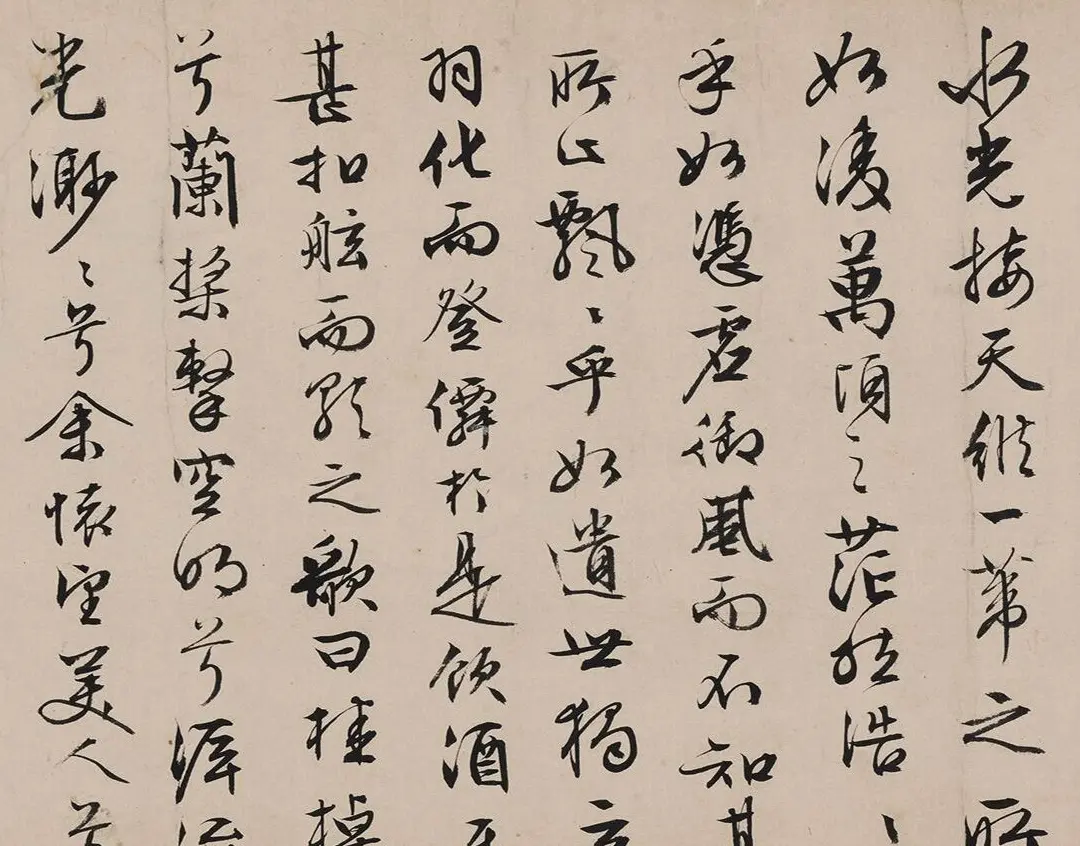 水光接天縱一葦之所
如凌萬頃之茫然浩〻
乎如憑虛御風而不知其
所止飄〻乎如遺世獨立
羽化而登僊於是飲酒
甚扣舷而歌之歌曰桂棹
兮蘭槳擊空明兮泝流
光渺〻兮余懷望美人兮